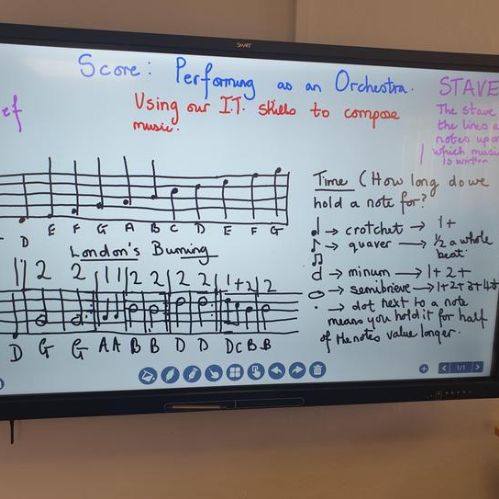 SMART
Score: Performing as an Orchestra.
STAVE
ef
Using our I.T. skills to compose
music.
The stave
the lines a
notes upo
which music
is written
D E F G A B C D E F G
Time (How long do we
hold a note for?
crotchet → 1+
quaver → ½ a whole
beat.
minum → 1+2+
semibrieve → 1+2+3+4+
· → dot next to a note
means you hold it for half
of the notes value longer.
London's Burning
1 2 2 1 1 2 2 2 2 1+2 2
D G G A A B B D D D C B B
1/1